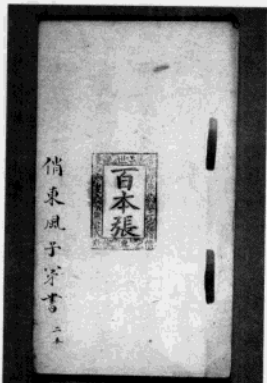 百本張
俏東風子弟書 二本